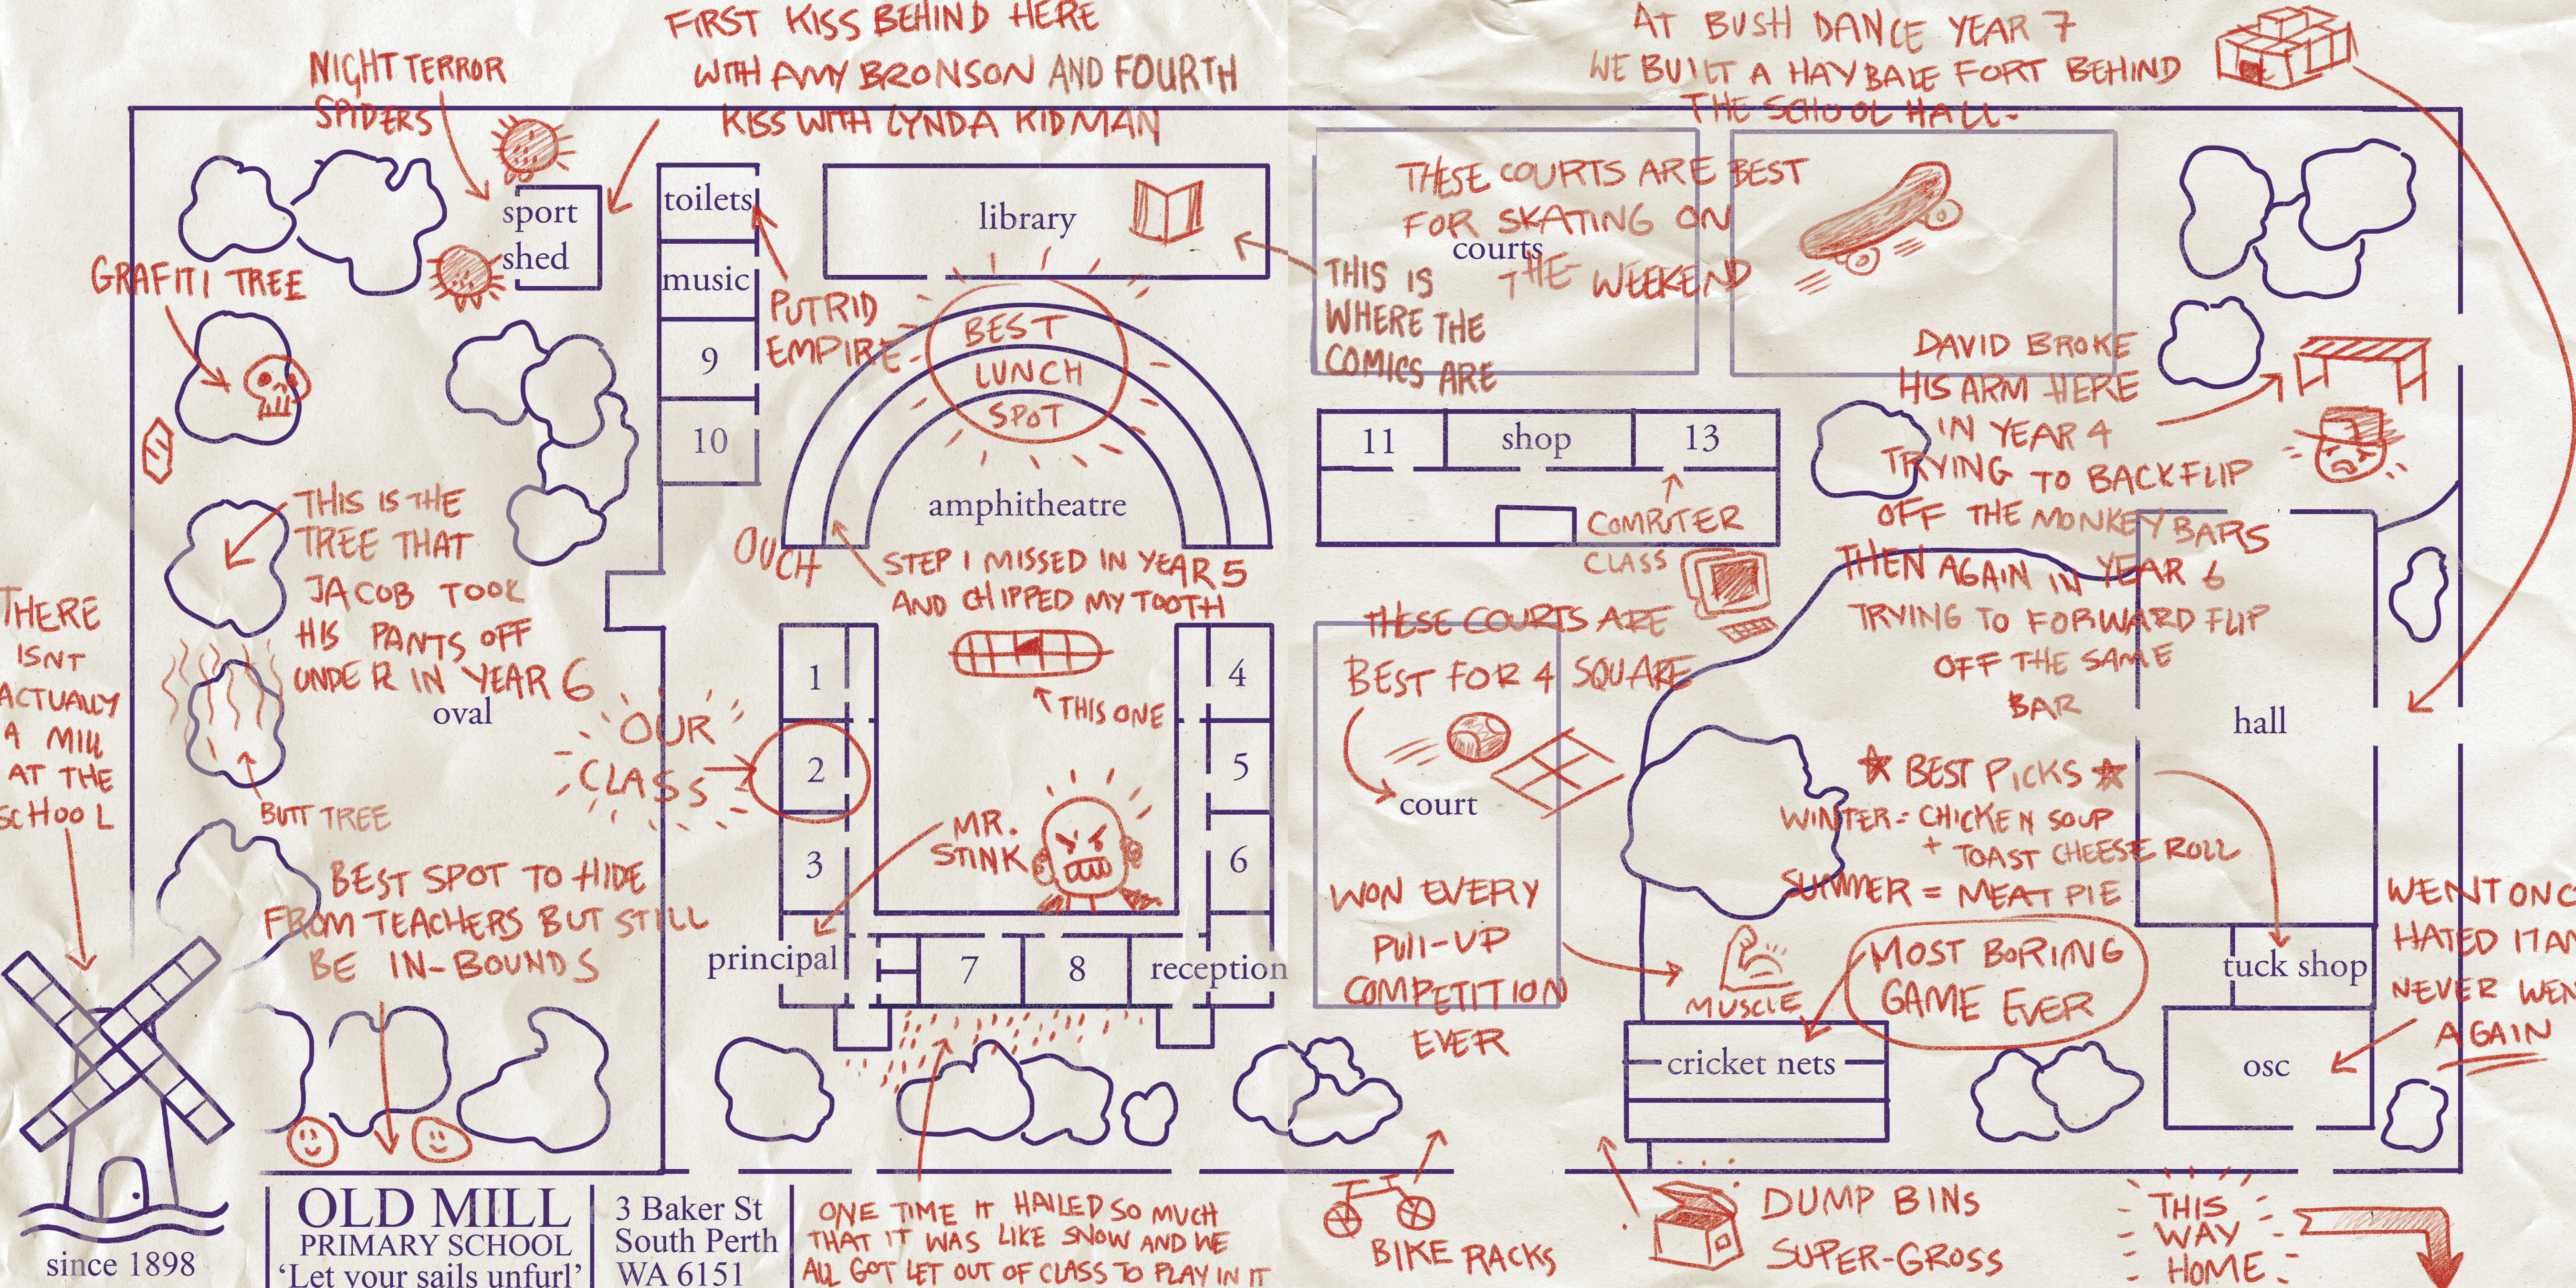 FIRST KISS BEHIND HERE
WITH AMY BRONSON AND FOURTH
KISS WITH LYNDA KIDMAN
NIGHT TERROR
SPIDERS
AT BUSH DANCE YEAR 7
WE BUILT A HAY BALE FORT BEHIND
THE SCHOOL HALL.
sport
shed
toilets
music
9
10
library
PUTRID
EMPIRE
GRAFITI TREE
BEST
LUNCH
SPOT
amphitheatre
THESE COURTS ARE BEST
FOR SKATING ON
THE WEEKEND
courts
THIS IS
WHERE THE
COMICS ARE
11
shop
13
COMPUTER
CLASS
DAVID BROKE
HIS ARM HERE
IN YEAR 4
TRYING TO BACKFLIP
OFF THE MONKEY BARS
THEN AGAIN IN YEAR 6
TRYING TO FORWARD FLIP
OFF THE SAME
BAR
THIS IS THE
TREE THAT
JACOB TOOK
HIS PANTS OFF
UNDER IN YEAR 6
oval
OUCH
STEP I MISSED IN YEAR 5
AND CHIPPED MY TOOTH
THIS ONE
THERE
ISNT
ACTUALLY
A MILL
AT THE
SCHOOL
BUTT TREE
OUR
CLASS
1
2
3
4
5
6
MR.
STINK
principal
7
8
reception
THESE COURTS ARE
BEST FOR 4 SQUARE
court
WON EVERY
PULL-UP
COMPETITION
EVER
MUSCLE
hall
BEST PICKS
WINTER = CHICKEN SOUP
+ TOAST CHEESE ROLL
SUMMER = MEAT PIE
tuck shop
MOST BORING
GAME EVER
cricket nets
osc
WENT ONC
HATED IT AN
NEVER WEN
AGAIN
BEST SPOT TO HIDE
FROM TEACHERS BUT STILL
BE IN-BOUNDS
since 1898
OLD MILL
PRIMARY SCHOOL
‘Let your sails unfurl’
3 Baker St
South Perth
WA 6151
ONE TIME IT HAILED SO MUCH
THAT IT WAS LIKE SNOW AND WE
ALL GOT LET OUT OF CLASS TO PLAY IN IT
BIKE RACKS
DUMP BINS
SUPER-GROSS
THIS
WAY
HOME